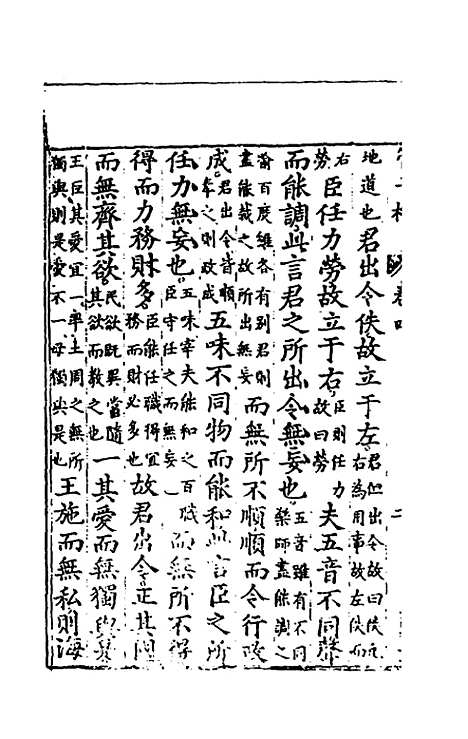 卷四 二
地道也君出令佚故立于左君但出令故曰佚左右為用事故左佚而
右勞臣任力勞故立于右臣則任力故曰勞夫五音不同聲
而能調此言君之所出令無妄也五音雖有不同樂師盡能調之
喻百度雖各有別君則盡能裁之故所出無妄而無所不順順而令行政
成君出令皆順奉之則政成五味不同物而能和此言臣之所
任力無妄也五味宰夫能和之百職臣守任之而無妄無所不得
得而力務財多臣能任職得宜務而財必多也故君出令正其國
而無齊其欲民欲既異當隨其欲而教之也一其愛而無獨與是
王臣其愛宜一率土周之無所獨與則是愛不一毋獨與是也王施而無私則海